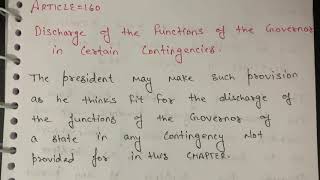 ARTICLE=160
Discharge of the Functions of the Governor
in Certain Contingencies.
The president may make such provision
as he thinks fit for the discharge of
the functions of the Governor of
a state in any Contingency Not
provided for in this CHAPTER.